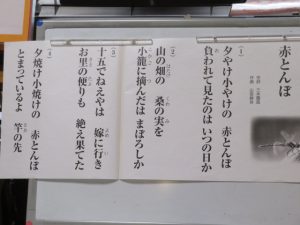 赤とんぼ
作詞 三木露風
作曲 山田耕筰
(1)
夕やけ小やけの 赤とんぼ
負われて見たのは いつの日か
(2)
山の畑の 桑の実を
小籠に摘んだは まぼろしか
(3)
十五でねえやは 嫁に行き
お里の便りも 絶え果てた
(4)
夕焼け小焼けの 赤とんぼ
とまっているよ 竿の先